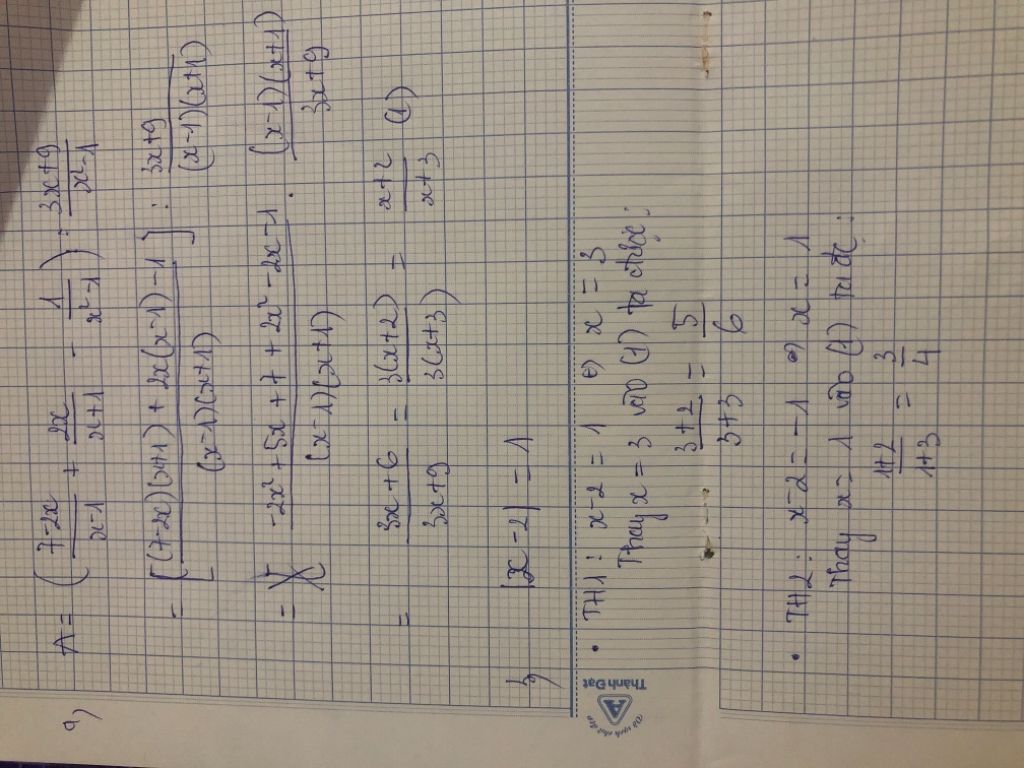 a) A = (7-2x/x-1 + 2x/x+1 - 1/x²-1) : 3x+9/x²-1
= [(7-2x)(x+1) + 2x(x-1) - 1/(x-1)(x+1)] : 3x+9/(x-1)(x+1)
= -2x²+5x+7+2x²-2x-1/(x-1)(x+1) . (x-1)(x+1)/3x+9
= 3x+6/3x+9 = 3(x+2)/3(x+3) = x+2/x+3 (1)
|x-2| = 1
• TH1: x-2 = 1 x = 3
Thay x = 3 vào (1) ta được:
3+2/3+3 = 5/6
• TH2: x-2 = -1 x = 1
Thay x = 1 vào (1)
1+2/1+3 = 3/4
Thành Đạt